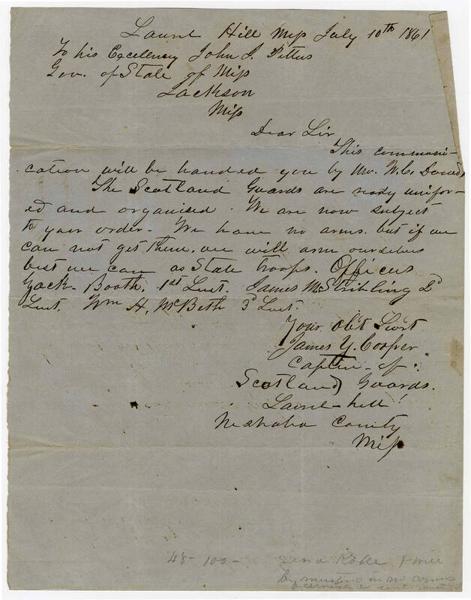 Laurel Hill Miſs July 10th 1861
To his Excellency John J. Pettus
Gov. of State of Miſs
Jackson
Miſs
Dear Sir
This communi-
cation will be handed you by Mr. W.
The Scotland Guards are ready uniform-
ed and organised. We are now subject
to your order. We have no arms. but if we
can not get them, we will arm ourselves
best we can as State troops. Officers
Jack. Booth. 1st Lieut. James M. Stribling 2d
Lieut. Wm H. McBeth 3d Lieut.
Your Obt Servt
James Y. Cooper
Captin of
Scotland Guards.
Laurel hill
Neshoba County
Miſs
48 - 100 -